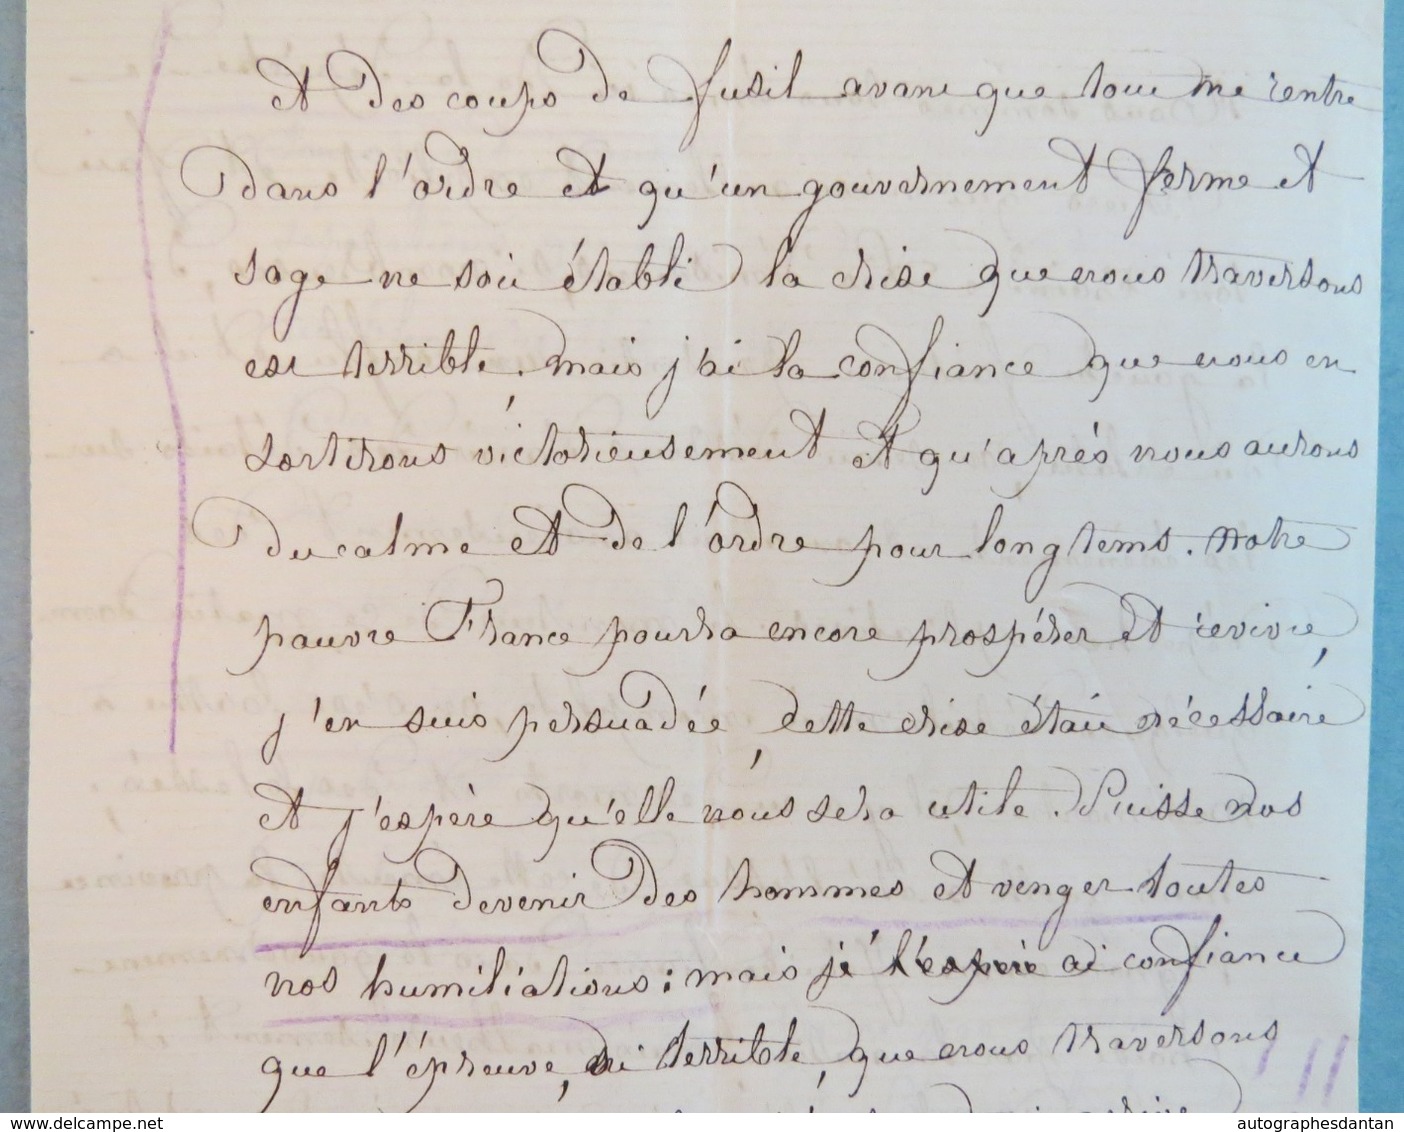 et des coups de fusil avant que tout ne rentre
dans l'ordre et qu'un gouvernement ferme et
sage ne soit établi. la crise que nous traversons
est terrible. mais j'ai la confiance que nous en
sortirons victorieusement et qu'après nous aurons
du calme et de l'ordre pour longtems. Notre
pauvre France pourra encore prospérer et revivre,
j'en suis persuadée, cette crise était nécessaire
et j'espère qu'elle nous sera utile. Puisse nos
enfants devenir des hommes et venger toutes
nos humiliations; mais je l'espère ai confiance
que l'épreuve, si terrible, que nous traversons
www.delcampe.net
autographesdantan